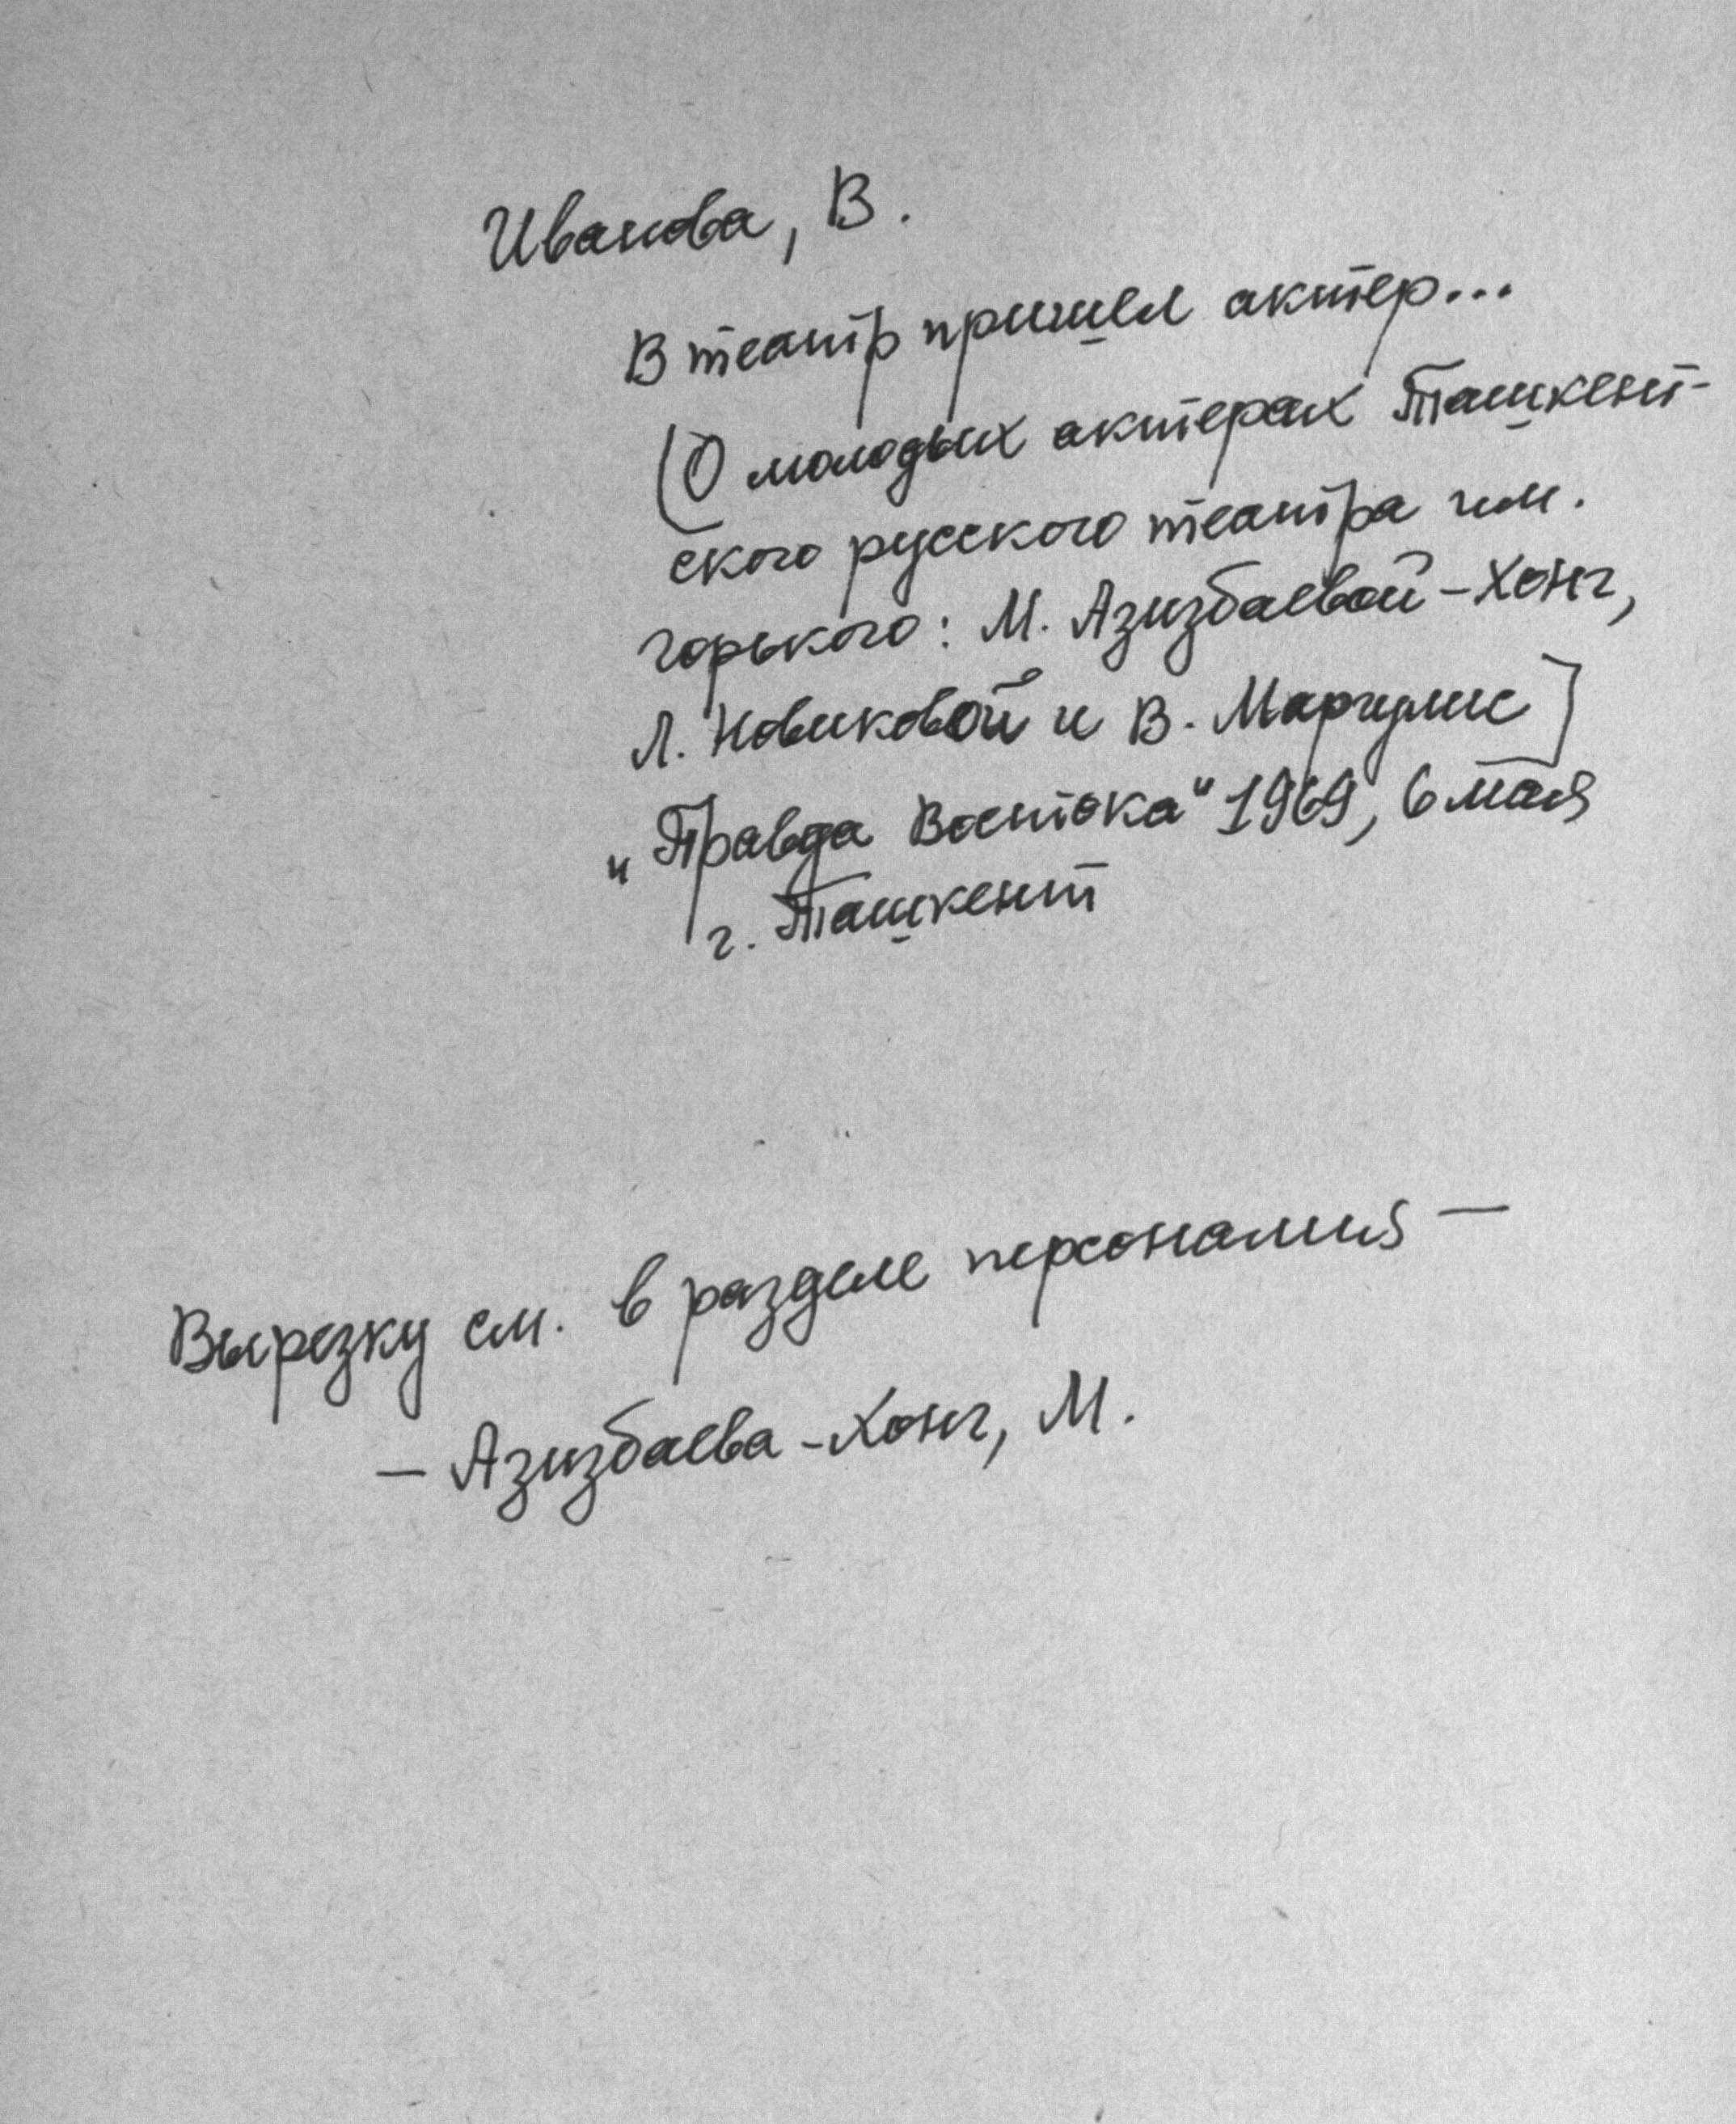 Иванова, В.
В театр пришел актер...
[О молодых актерах Ташкент-
ского русского театра им.
Горького: М. Азизбаевой-Хонг,
Л. Новиковой и В. Маргулис]
„Правда Востока" 1969, 6 мая
г. Ташкент
Вырезку см. в разделе персоналия —
— Азизбаева-Хонг, М.